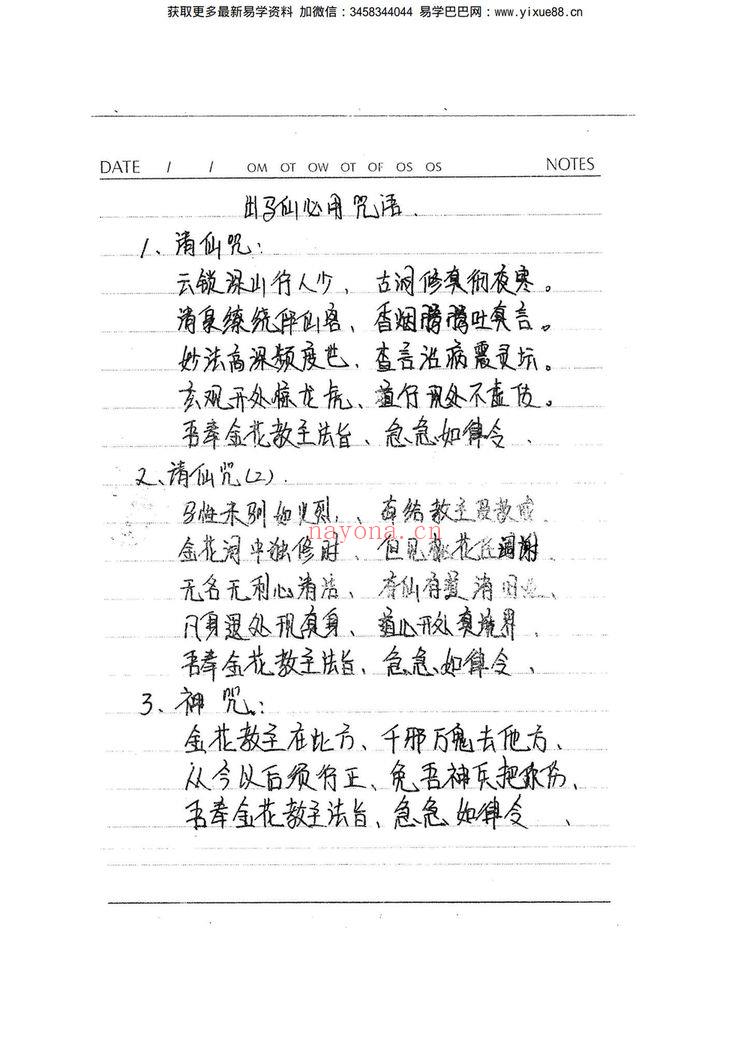 获取更多最新易学资料 加微信：3458344044 易学巴巴网：www.yixue88.cn
DATE / / OM OT OW OT OF OS OS NOTES
出马仙必用咒语.
1、请仙咒：
云锁深山行人少、古洞修真彻夜寒。
清泉缭绕伴仙客、香烟腾腾吐真言。
妙法高深频度世、查言治病震灵坛。
玄观开处惊龙虎、道行现处不虚传。
吾奉金花教主法旨、急急如律令、
2、请仙咒(2).
马性未驯如火烈、直结教主
金花洞中独修时、但见花凋谢、
无名无利心清洁、香仙有道消
凡身退处现真身、道心开处真境界、
吾奉金花教主法旨、急急如律令、
nayona.cn
3、神咒：
金花教主在此方、千邪万鬼去他方、
从今以后须行正、免吾神兵把你伤、
吾奉金花教主法旨、急急如律令、